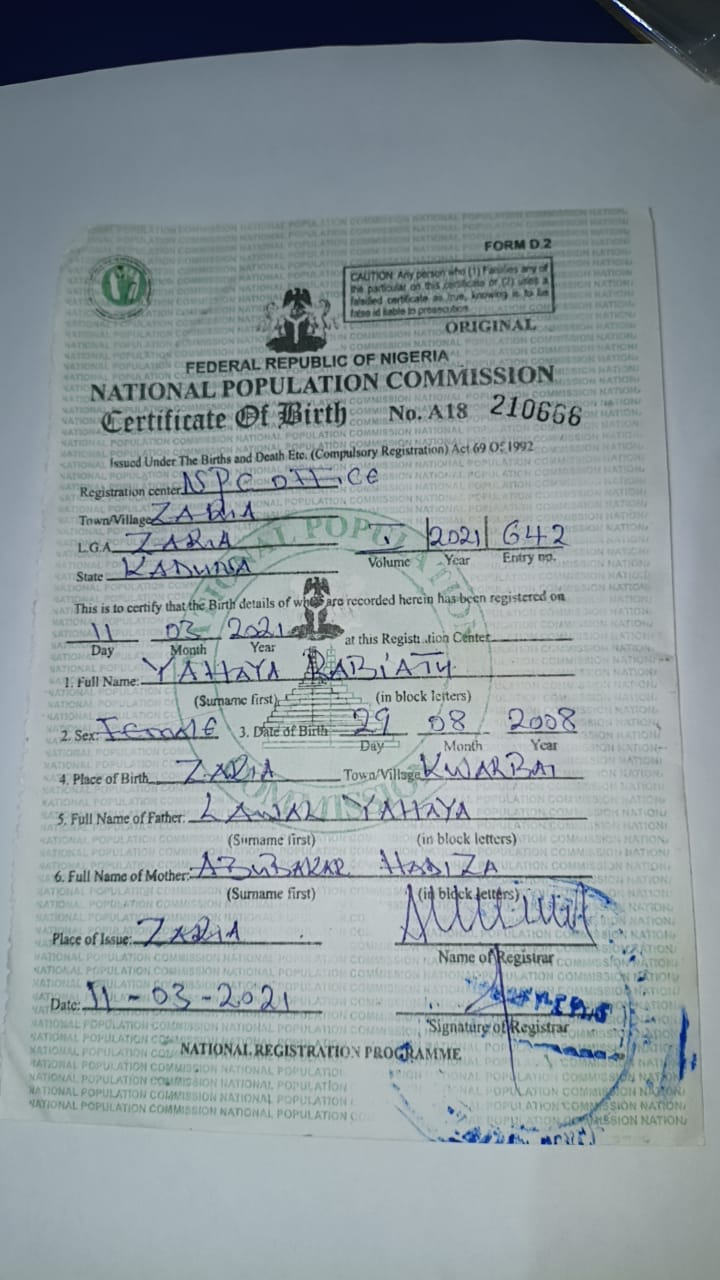 FORM D.2
CAUTION: Any person who (1) Falsifies any of
the particular on this certificate or (2) uses a
falsified certificate as true, knowing is to be
false id liable to prosecution.
ORIGINAL
FEDERAL REPUBLIC OF NIGERIA
NATIONAL POPULATION COMMISSION
Certificate Of Birth No. A18 210666
Issued Under The Births and Death Etc. (Compulsory Registration) Act 69 Of 1992
Registration center NPC OFFICE
Town/Village ZARIA
L.G.A. ZARIA 2021 642
Volume Year Entry no.
State KADUNA
This is to certify that the Birth details of who are recorded herein has been registered on
11 03 2021 at this Registration Center
Day Month Year
1. Full Name: YAHAYA RABI'ATU
(Surname first) (in block letters)
2. Sex: FEMALE 3. Date of Birth 29 08 2008
Day Month Year
4. Place of Birth ZARIA Town/Village KWARBAI
5. Full Name of Father: LAWAL YAHAYA
(Surname first) (in block letters)
6. Full Name of Mother: ABUBAKAR HADIZA
(Surname first) (in block letters)
Place of Issue: ZARIA
Name of Registrar
Date: 11-03-2021
Signature of Registrar
NATIONAL REGISTRATION PROGRAMME